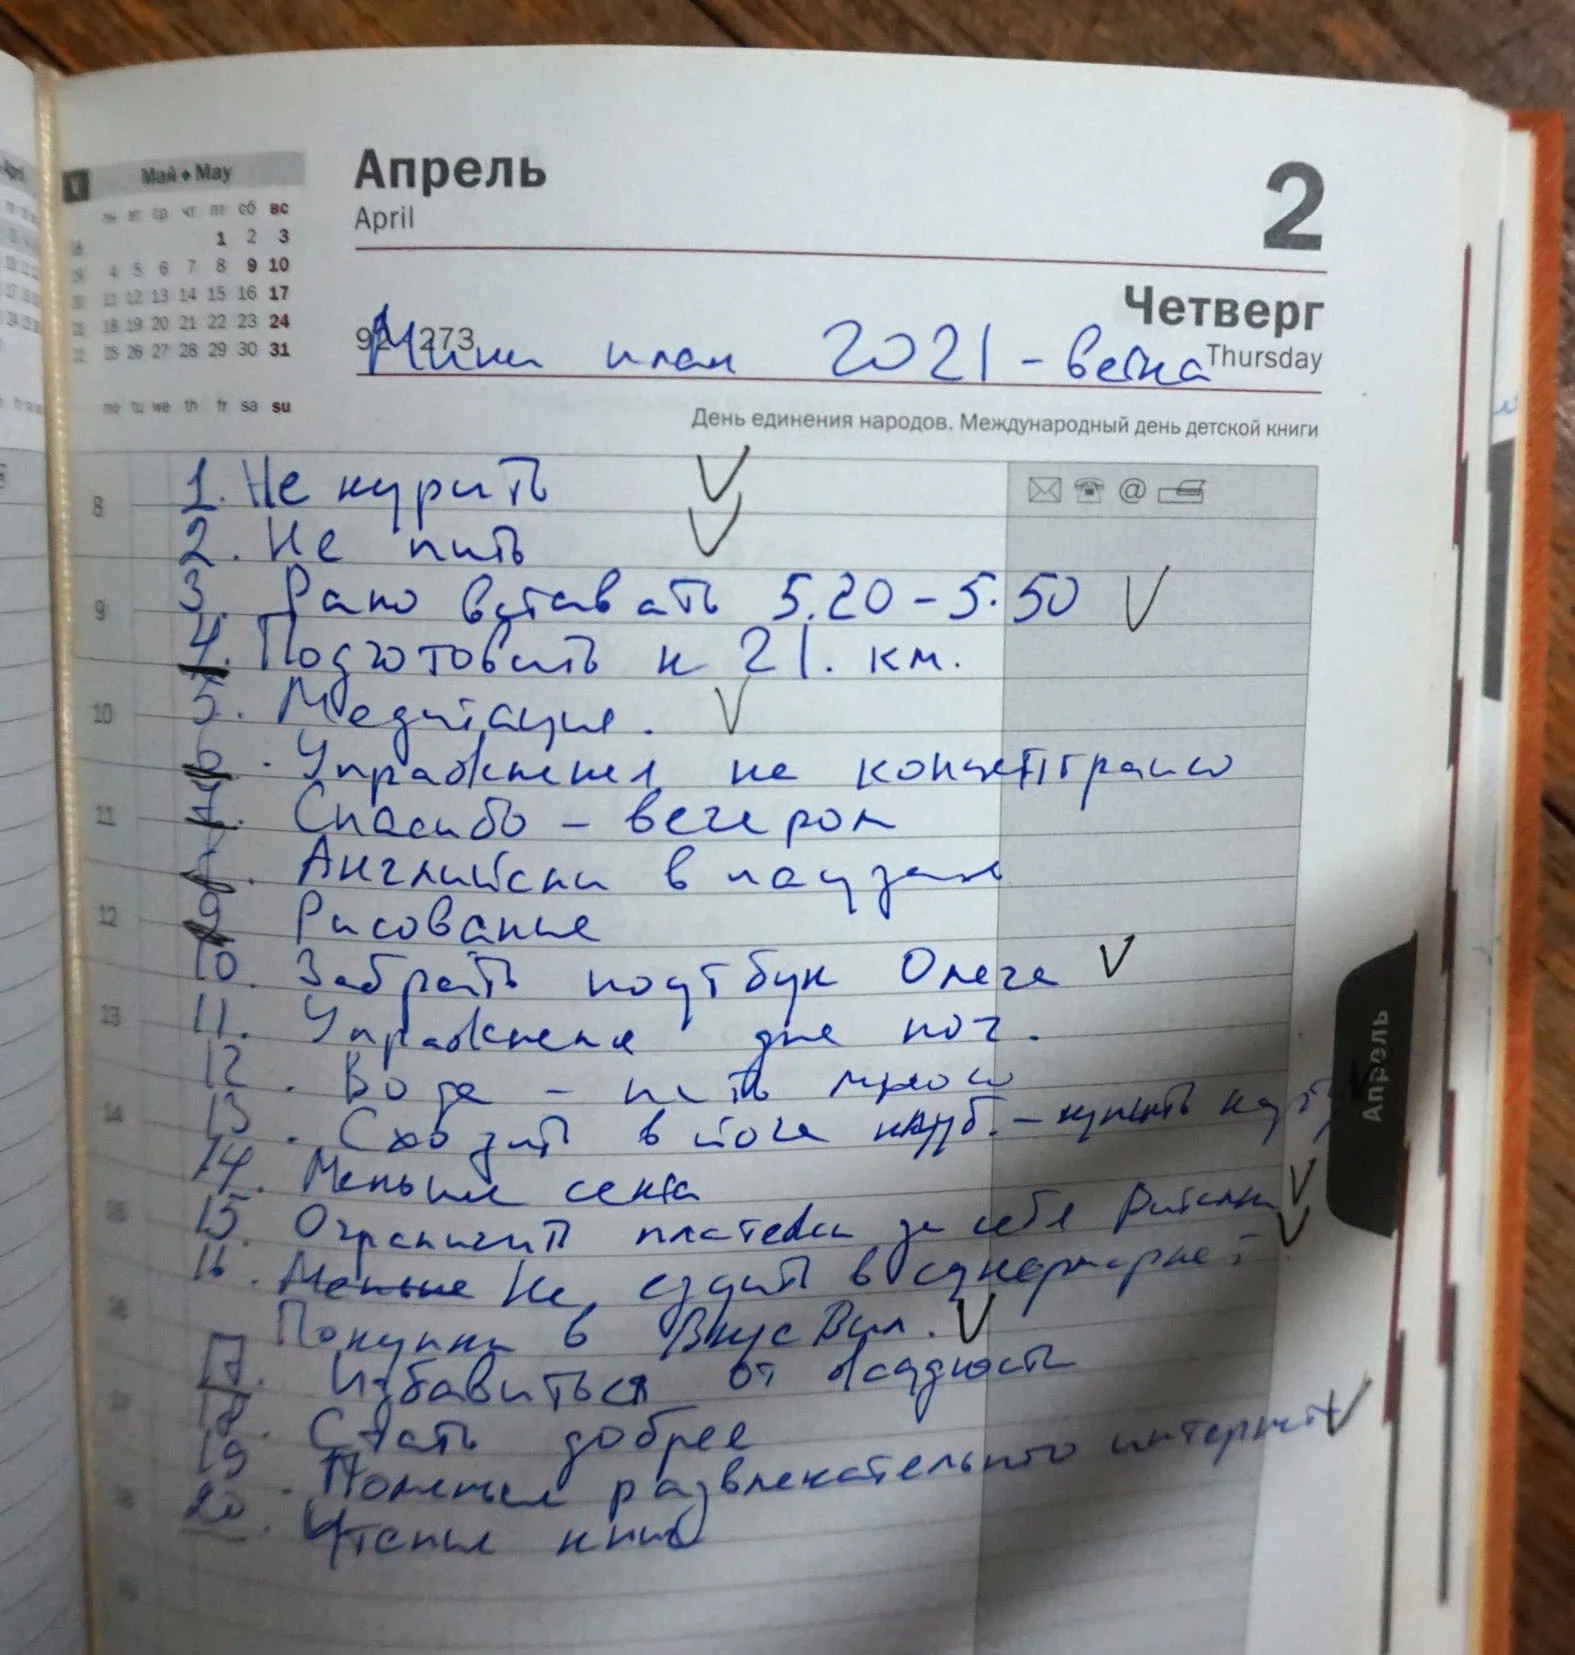 Май ♦ May
пн вт ср чт пт сб вс
1 2 3
4 5 6 7 8 9 10
11 12 13 14 15 16 17
18 19 20 21 22 23 24
25 26 27 28 29 30 31
mo tu we th fr sa su
Апрель
April
2
Четверг
Thursday
Мини план 2021 - весна
День единения народов. Международный день детской книги
8
1. Не курить
2. Не пить
9
3. Рано вставать 5.20 - 5.50
4. Подготовить к 21. км.
10
5. Медитация.
6. Упражнения на
11
7. Спасибо - вечером
8. Английски в паузах
12
9. Рисование
10. Забрать ноутбук Олега
13
11. Упражнения для ног.
12. Вода - пить
14
13. Сходить в йога клуб. - купить карту
14. Меньше секса
15
15. Ограничить платежи за себя
16. Меньше Не ездить в
16
Покупки в ВкусВил.
17. Избавиться от жадности
17
18. Стать добрее
19. развлекательного интернета
18
20. Чтение книг
19
Апрель